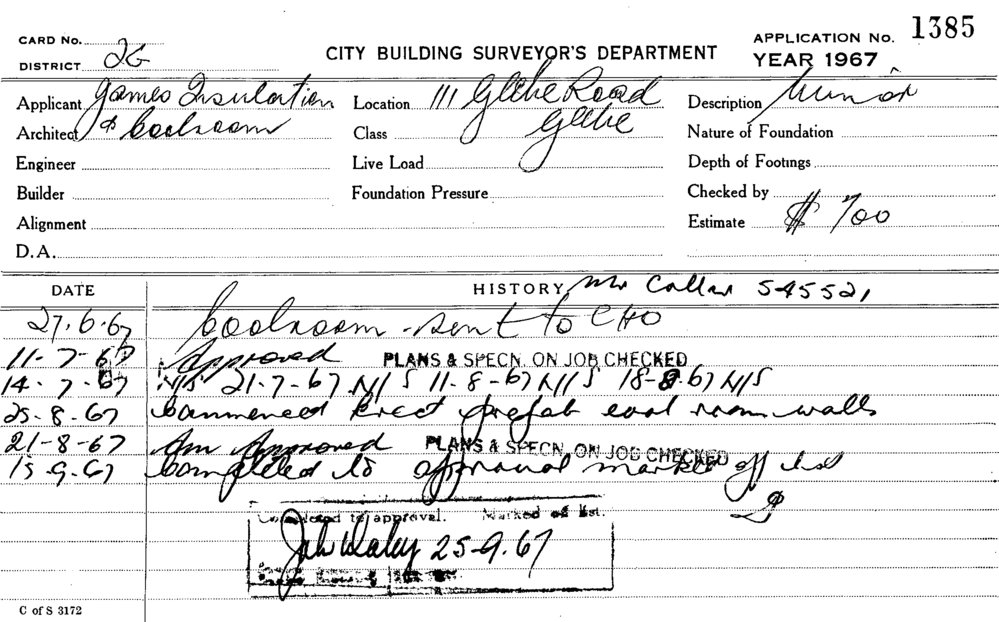 CARD No.
DISTRICT 26
CITY BUILDING SURVEYOR'S DEPARTMENT
APPLICATION No. 1385
YEAR 1967
Applicant James Insulation
Location 111 Glebe Road
Glebe
Description Minor
Architect & Coolroom
Class
Nature of Foundation
Engineer
Live Load
Depth of Footings
Builder
Foundation Pressure
Checked by
Alignment
Estimate $ 700
D.A.
DATE
HISTORY Mr 545521
27.6.67 Coolroom - sent to CHO
11-7-67 Approved PLANS & SPECN. ON JOB CHECKED
14-7-67 N/S 21-7-67 N/S 11-8-67 N/S 18-8-67 N/S
25-8-67 Commenced Erect prefab cool room walls
21-8-67 Am Approved PLANS & SPECN. ON JOB CHECKED
15-9-67 Completed to approval marked off list
Completed to approval. Marked off list.
25-9-67
C of S 3172